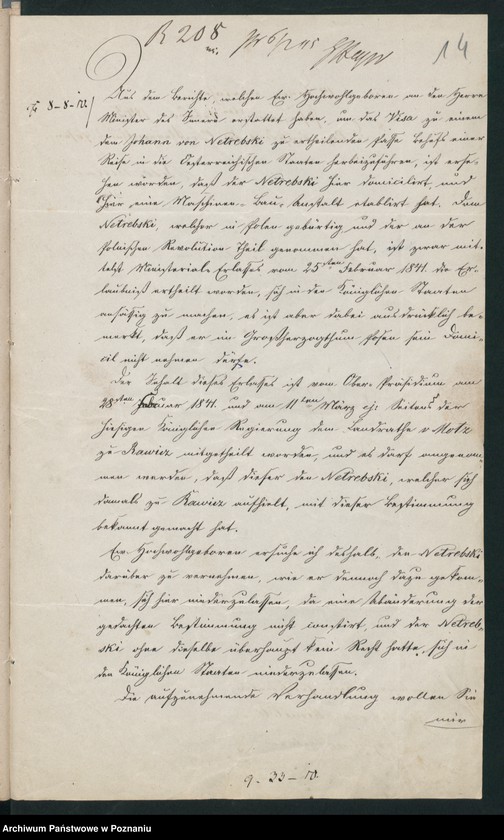 B 208
14
Aus dem Berichte, welchen Ew. Hochwohlgeboren an den Herrn
Minister des Innern erstattet haben, um das Visa zu einem
dem Johann von Netrebski zu ertheilenden Passe Behufs einer
Reise in die Oesterreichischen Staaten herbeizuführen, ist erse-
hen worden, daß der Netrebski hier domicilirt, und
hier eine Maschinen-Bau-Anstalt etablirt hat. Dem
Netrebski, welcher in Polen gebürtig und der an der
polnischen Revolution Theil genommen hat, ist zwar mit-
telst Ministerial-Erlasses vom 25sten Februar 1841. die Er-
laubniß ertheilt worden, sich in den Königlichen Staaten
ansäßig zu machen, es ist aber dabei ausdrücklich be-
merkt, daß er im Großherzogthum Posen sein Domi-
cil nicht nehmen dürfe.
Der Inhalt dieses Erlasses ist vom Ober-Präsidium am
28sten 1841. und am 11ten März ej: Seitens der
hiesigen Königlichen Regierung dem Landrathe v Motz
zu Rawicz mitgetheilt worden, und es darf angenom-
men werden, daß dieser den Netrebski, welcher sich
damals zu Rawicz aufhielt, mit dieser Bestimmung
bekannt gemacht hat.
Ew. Hochwohlgeboren ersuche ich deshalb, den Netrebski
darüber zu vernehmen, wie er dennoch dazu gekom-
men, sich hier niederzulassen, da eine Abänderung der
gedachten Bestimmung nicht und der Netreb-
ski ohne dieselbe überhaupt kein Recht hatte, sich in
den Königlichen Staaten niederzulassen.
Die aufzunehmende Verhandlung wollen Sie
mir
Archiwum Państwowe w Poznaniu